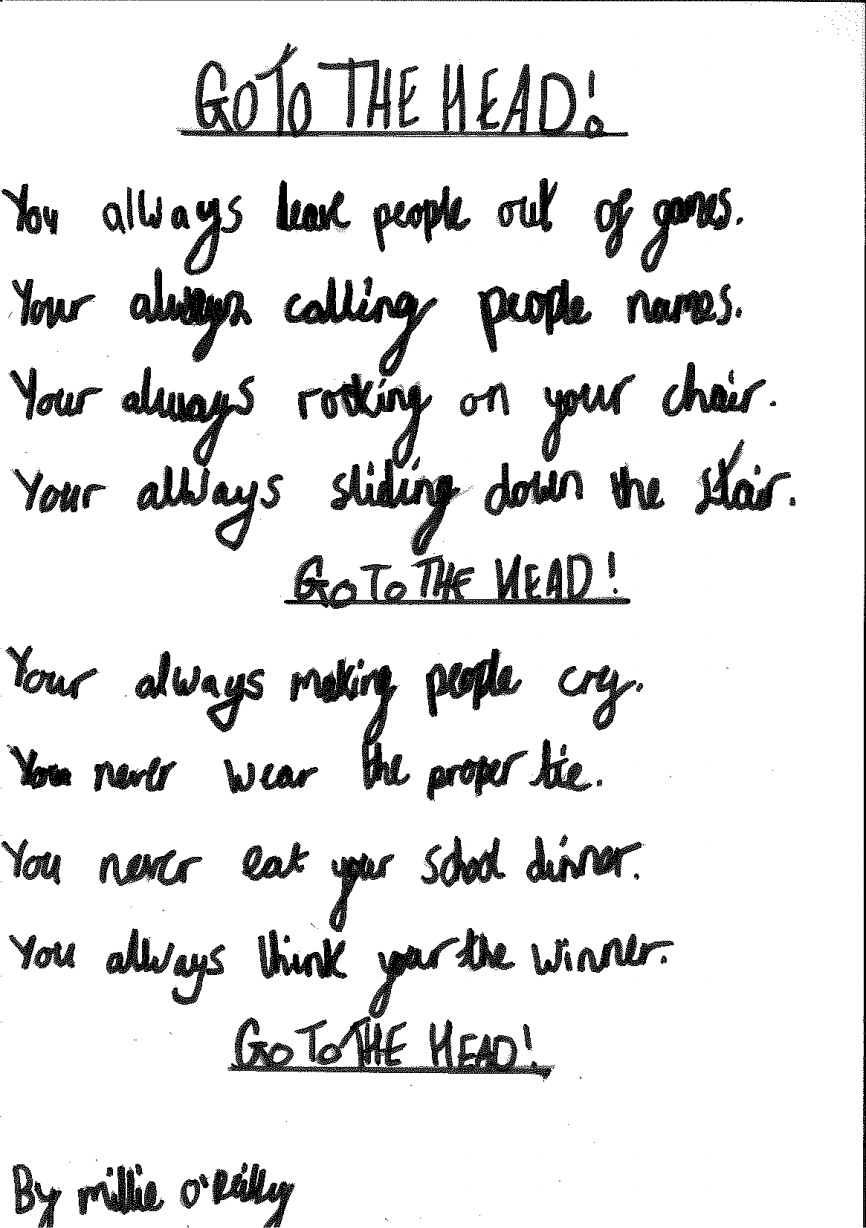 GO TO THE HEAD!
You always leave people out of games.
Your always calling people names.
Your always rocking on your chair.
Your allways sliding down the stair.
GO TO THE HEAD!
Your always making people cry.
You never wear the proper tie.
You never eat your school dinner.
You allways think your the winner.
GO TO THE HEAD!
By millie O'Reilly